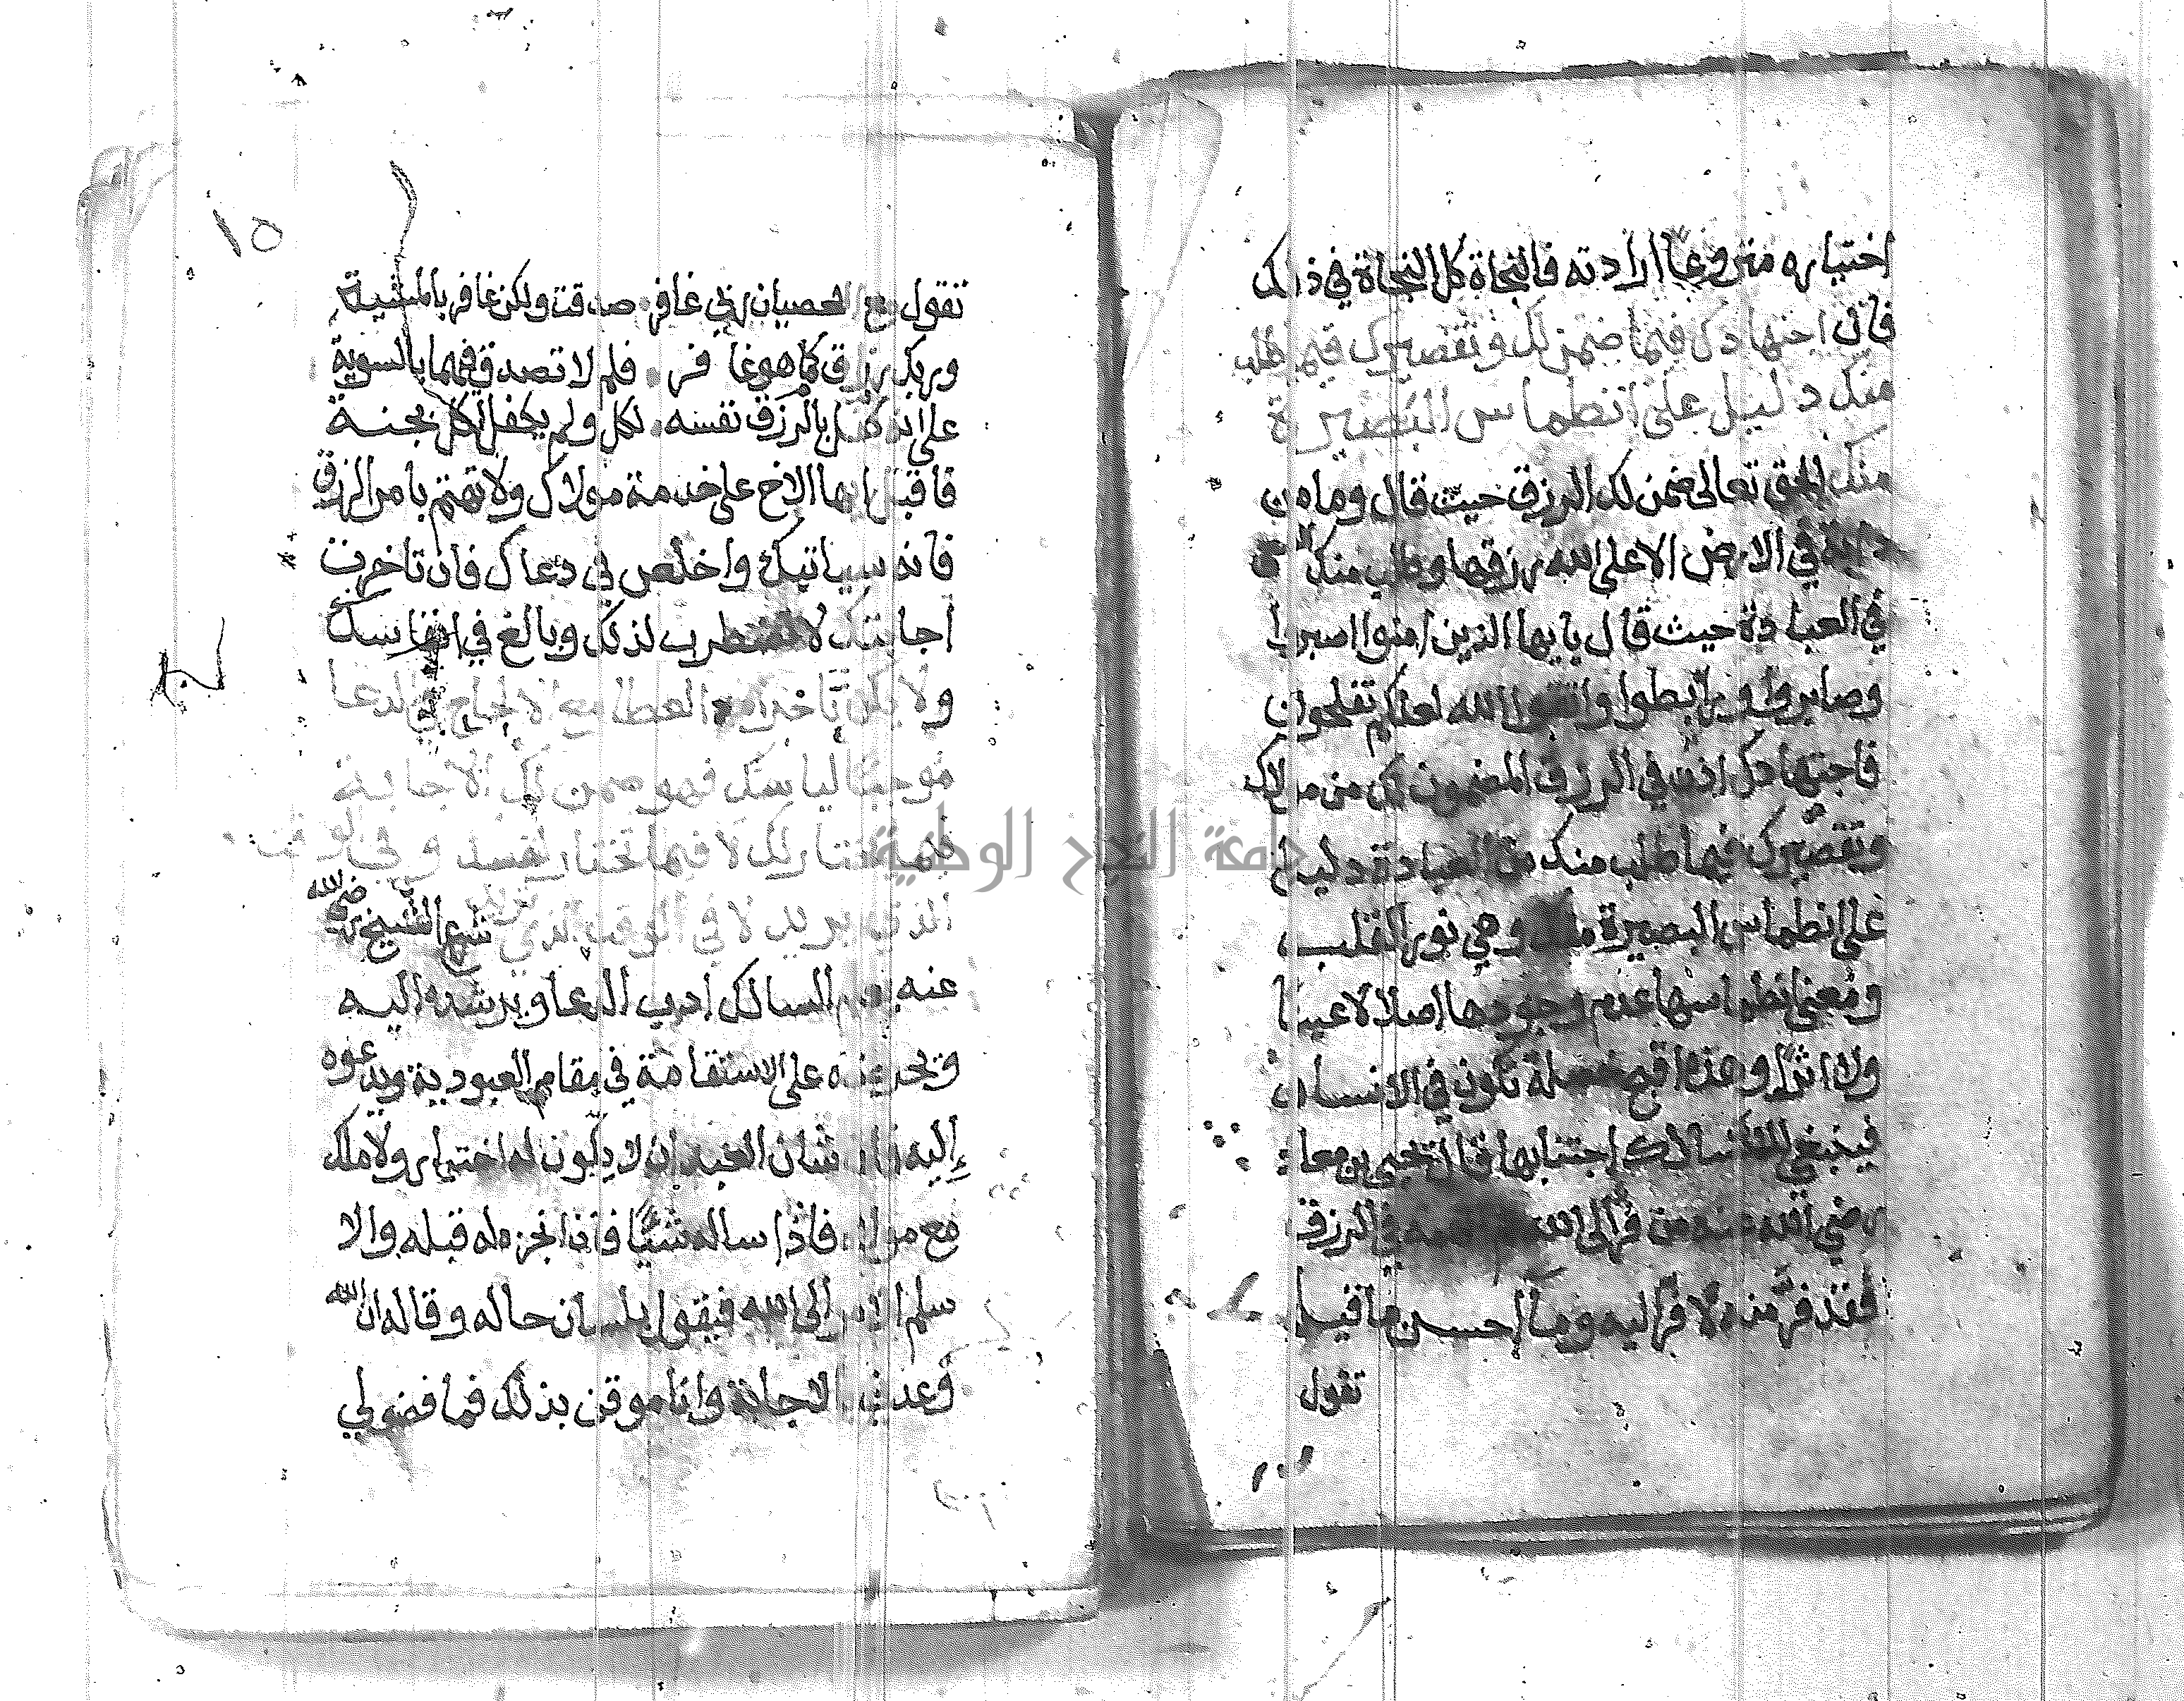 اختياره منزوعا ارادته فالنجاة كل النجاة في ذلك
فان اجتهادك فيما ضمن لك وتقصيرك فيما طلب
منك دليل على انطماس البصيرة
منك الحق تعالى ضمن لك الرزق حيث قال وما من
دابة في الارض الا على الله رزقها وطلب منك
في العبادة حيث قال يايها الذين امنوا اصبروا
وصابروا ورابطوا واتقوا الله لعلكم تفلحون
فاجتهادك اذن في الرزق المضمون لك من مولاك
وتقصيرك فيما طلب منك من العبادة دليل
على انطماس البصيرة منك وهي نور القلب
ومعنى انطماسها عدم وجودها اصلا لا عينا
ولا اثرا وهذه اقبح خصلة تكون في الانسان
فينبغي للسالك اجتنابها قال يحيى بن معاذ
رضي الله عنه من فر الى الله في الرزق
فقد فر منه لا فر اليه وما احسن ما قيل
تقول
١٥
تقول مع العصيان ربي غافر صدقت ولكن غافر بالمشية
وربك رزاق كما هو غافر فلم لا تصدق فيهما بالسوية
على انه كفل بالرزق نفسه لكل ولم يكفل لكل بجنة
فاقبل ايها الاخ على خدمة مولاك ولا تهتم بامر الرزق
فانه سياتيك واخلص في دعاك فان تاخرت
اجابتك لا تضطرب لذلك وبالغ في انفاسك
ولا يكن تاخر امد العطا مع الالحاح في الدعا
موجبا لياسك فهو ضمن لك الاجابة
فيما يختار لك لا فيما تختار لنفسك وفي الوقت
الذي يريد لا في الوقت الذي تريد شرع الشيخ رضي الله
عنه يعلم السالك ادب الدعا ويرشده اليه
ويحرضه على الاستقامة في مقام العبودية ويدعوه
إليه فان شان العبد ان لا يكون له اختيار ولا ملك
مع مولاه فاذا ساله شيئا فان انجزه له قبله والا
سلم الامر الى الله فيقول بلسان حاله وقاله ان الله
وعدني بالاجابة وانا موقن بذلك فما فضولي
جامعة النجاح الوطنية